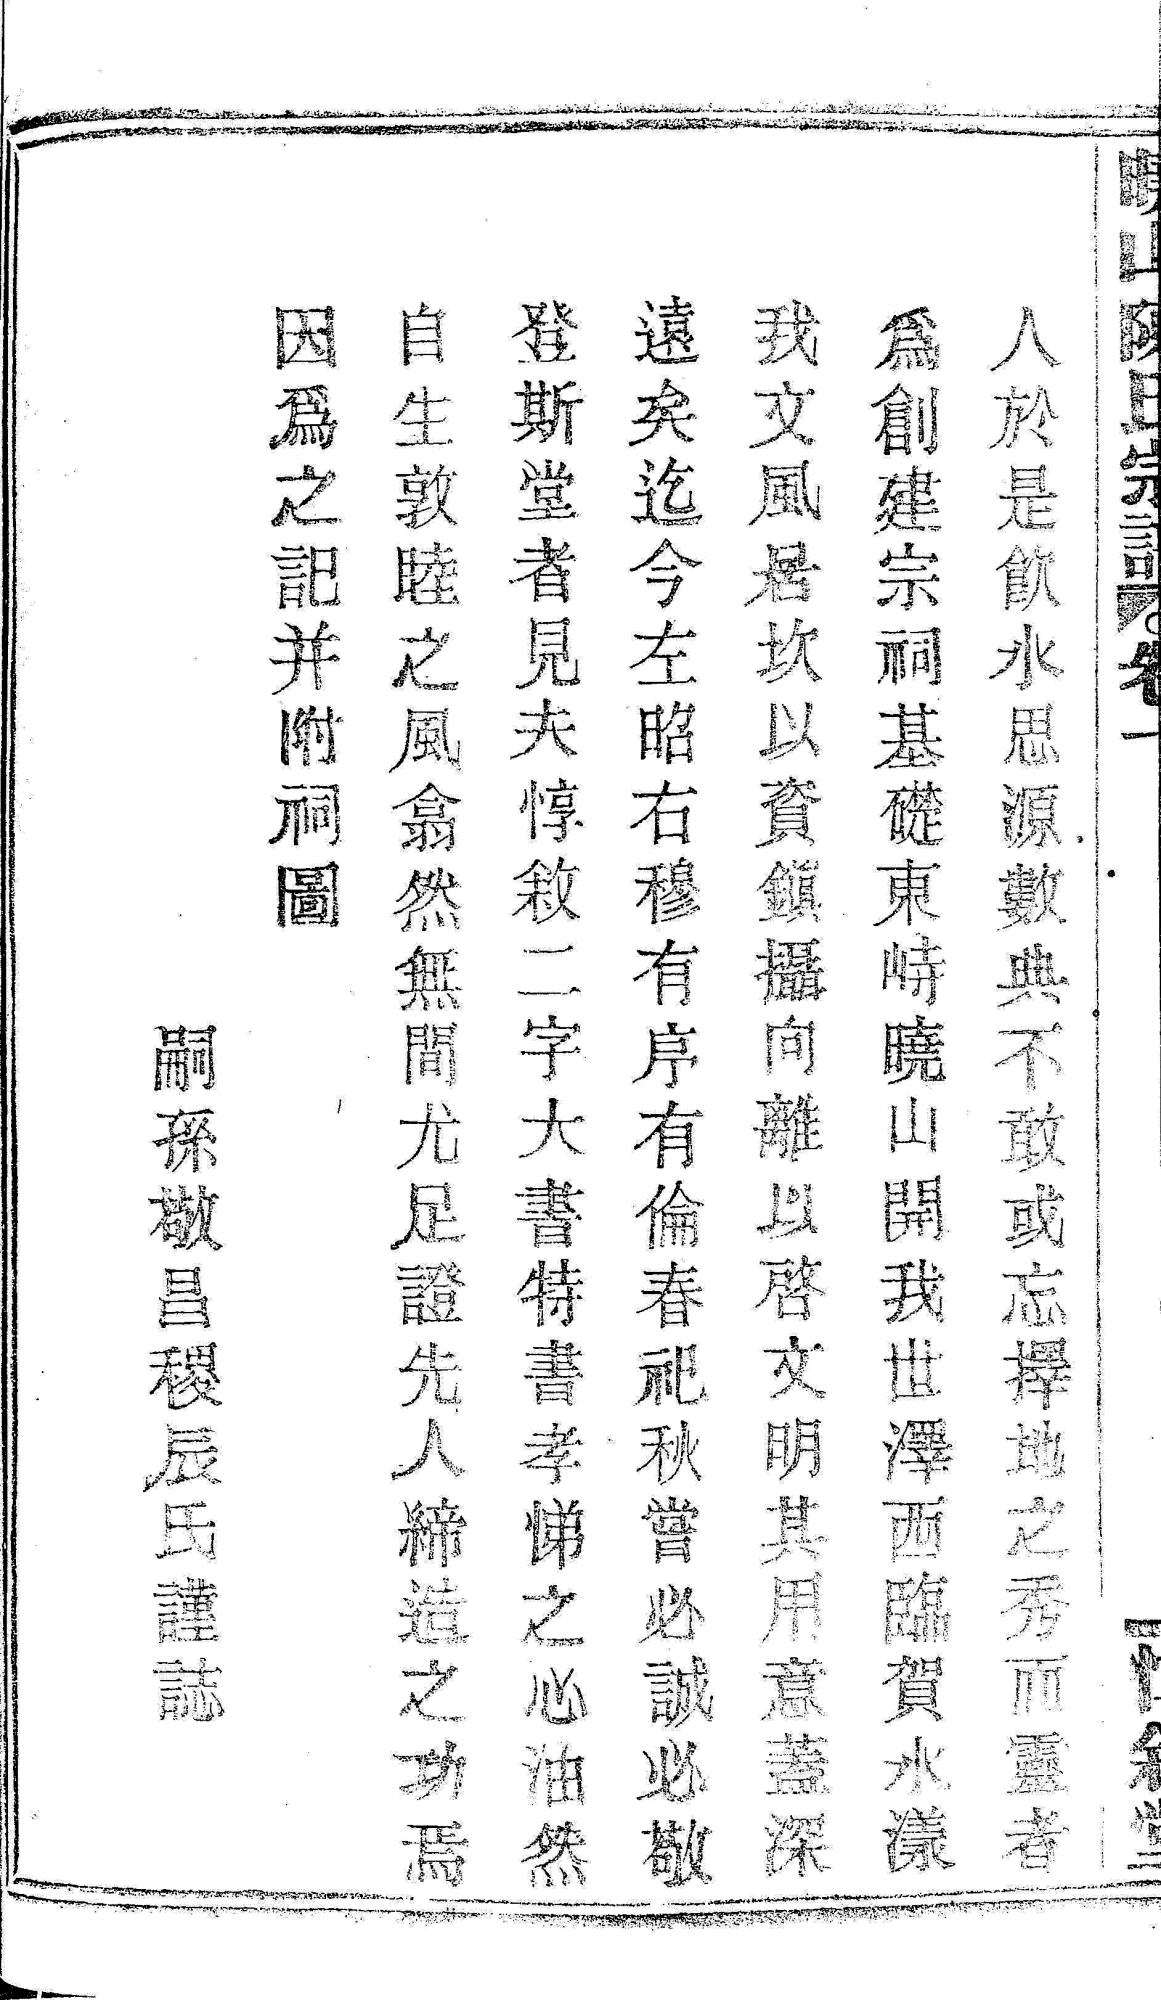 曉山陳氏宗譜 卷一 惇敘堂
人於是飲水思源數典不敢或忘擇地之秀而靈者
爲創建宗祠基礎東峙曉山開我世澤西臨賀水漾
我文風居坎以資鎮攝向離以啓文明其用意蓋深
遠矣迄今左昭右穆有序有倫春祀秋嘗必誠必敬
登斯堂者見夫惇敘二字大書特書孝悌之心油然
自生敦睦之風翕然無間尤足證先人締造之功焉
因爲之記并附祠圖
嗣孫敬昌稷辰氏謹誌